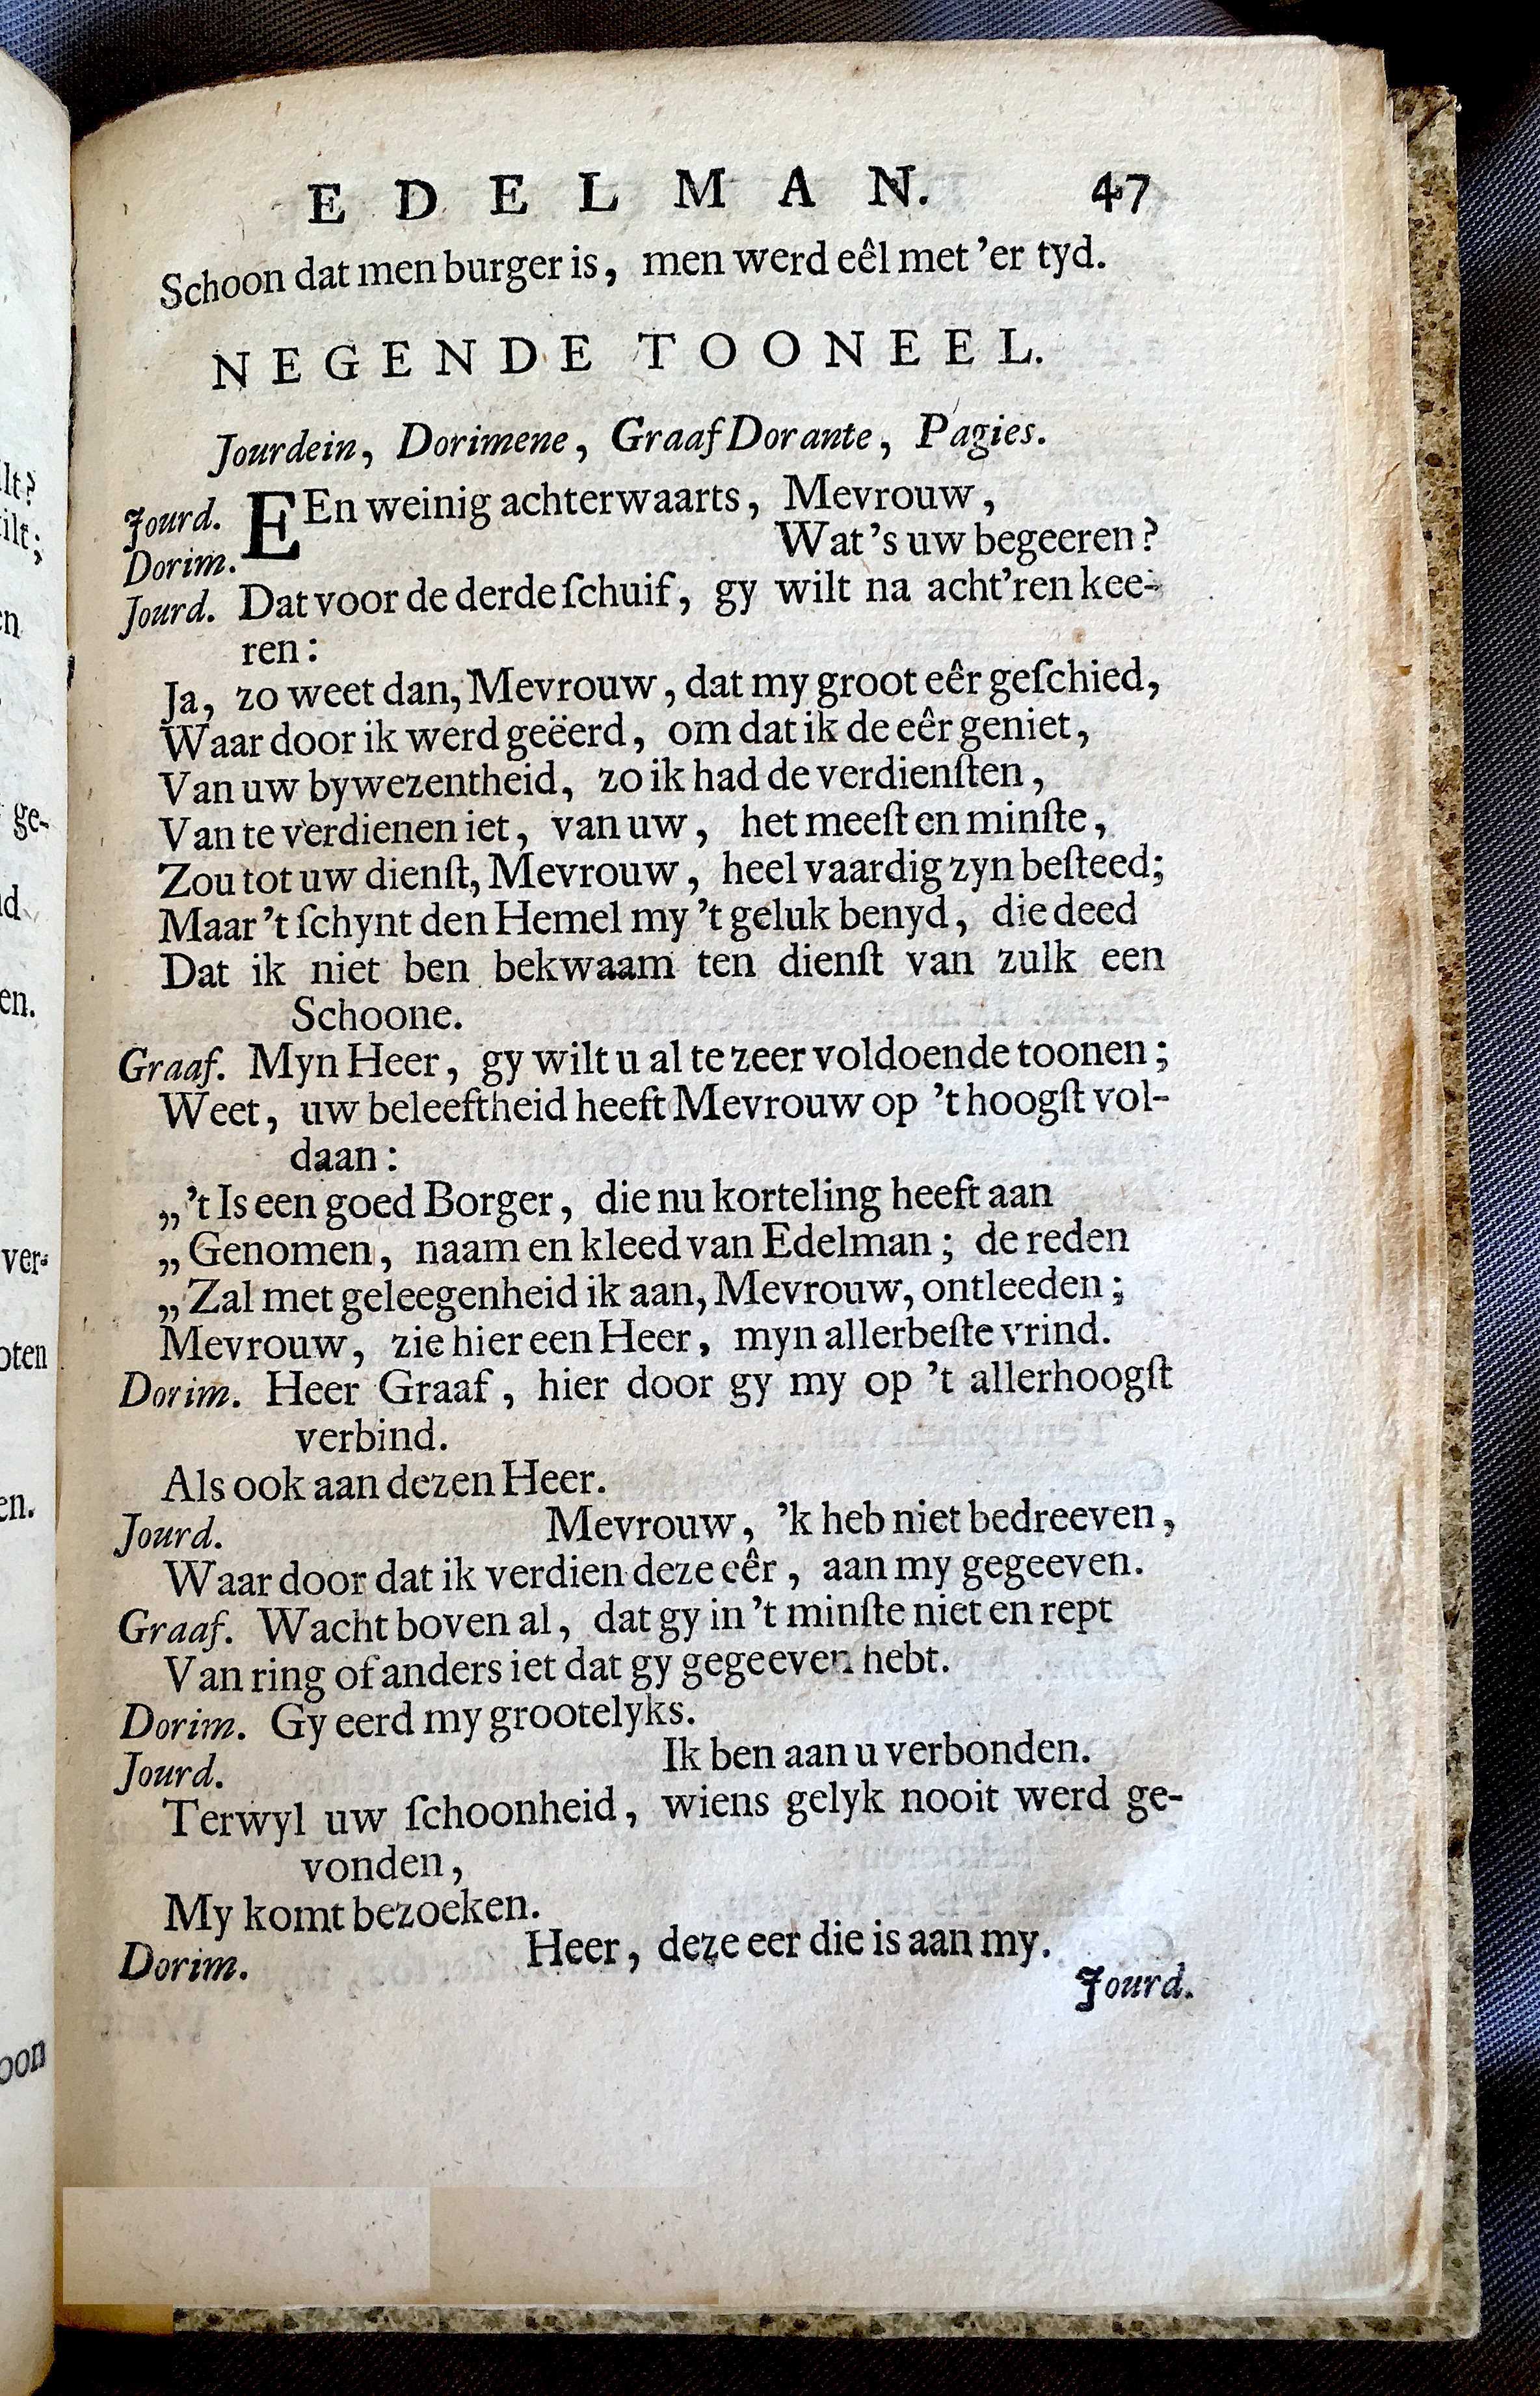 EDELMAN. 47
Schoon dat men burger is, men werd eêl met 'er tyd.
NEGENDE TOONEEL.
Jourdein, Dorimene, Graaf Dorante, Pagies.
Jourd. EEn weinig achterwaarts, Mevrouw,
Dorim. Wat's uw begeeren?
Jourd. Dat voor de derde ſchuif, gy wilt na acht'ren kee-
ren:
Ja, zo weet dan, Mevrouw, dat my groot eêr geſchied,
Waar door ik werd geëerd, om dat ik de eêr geniet,
Van uw bywezentheid, zo ik had de verdienſten,
Van te verdienen iet, van uw, het meeſt en minſte,
Zou tot uw dienſt, Mevrouw, heel vaardig zyn beſteed;
Maar 't ſchynt den Hemel my 't geluk benyd, die deed
Dat ik niet ben bekwaam ten dienſt van zulk een
Schoone.
Graaf. Myn Heer, gy wilt u al te zeer voldoende toonen;
Weet, uw beleeftheid heeft Mevrouw op 't hoogſt vol-
daan:
„'t Is een goed Borger, die nu korteling heeft aan
„Genomen, naam en kleed van Edelman; de reden
„Zal met geleegenheid ik aan, Mevrouw, ontleeden;
Mevrouw, zie hier een Heer, myn allerbeſte vrind.
Dorim. Heer Graaf, hier door gy my op 't allerhoogſt
verbind.
Als ook aan dezen Heer.
Jourd. Mevrouw, 'k heb niet bedreeven,
Waar door dat ik verdien deze eêr, aan my gegeeven.
Graaf. Wacht boven al, dat gy in 't minſte niet en rept
Van ring of anders iet dat gy gegeeven hebt.
Dorim. Gy eerd my grootelyks.
Jourd. Ik ben aan u verbonden.
Terwyl uw ſchoonheid, wiens gelyk nooit werd ge-
vonden,
My komt bezoeken.
Dorim. Heer, deze eer die is aan my.
Jourd.